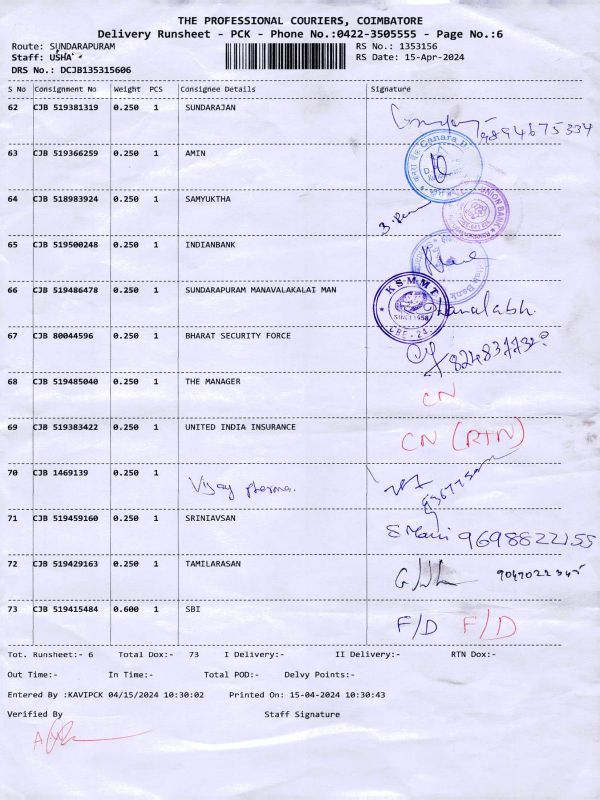 THE PROFESSIONAL COURIERS, COIMBATORE
Delivery Runsheet - PCK - Phone No.:0422-3505555 - Page No.:6
Route: SUNDARAPURAM RS No.: 1353156
Staff: USHA RS Date: 15-Apr-2024
DRS No.: DCJB135315606
S No Consignment No Weight PCS Consignee Details Signature
62 CJB 519381319 0.250 1 SUNDARAJAN
9894675334
63 CJB 519366259 0.250 1 AMIN
Canara B
64 CJB 518983924 0.250 1 SAMYUKTHA
UNION BANK
65 CJB 519500248 0.250 1 INDIANBANK
Bank
66 CJB 519486478 0.250 1 SUNDARAPURAM MANAVALAKALAI MAN
KSMMT
SINCE 1958
CBE-24
67 CJB 80044596 0.250 1 BHARAT SECURITY FORCE
68 CJB 519485040 0.250 1 THE MANAGER CN
69 CJB 519383422 0.250 1 UNITED INDIA INSURANCE CN (RTN)
70 CJB 1469139 0.250 1 Vijay pharma.
71 CJB 519459160 0.250 1 SRINIAVSAN S Mani 9698822155
72 CJB 519429163 0.250 1 TAMILARASAN
73 CJB 519415484 0.600 1 SBI F/D F/D
Tot. Runsheet:- 6 Total Dox:- 73 I Delivery:- II Delivery:- RTN Dox:-
Out Time:- In Time:- Total POD:- Delvy Points:-
Entered By :KAVIPCK 04/15/2024 10:30:02 Printed On: 15-04-2024 10:30:43
Verified By Staff Signature